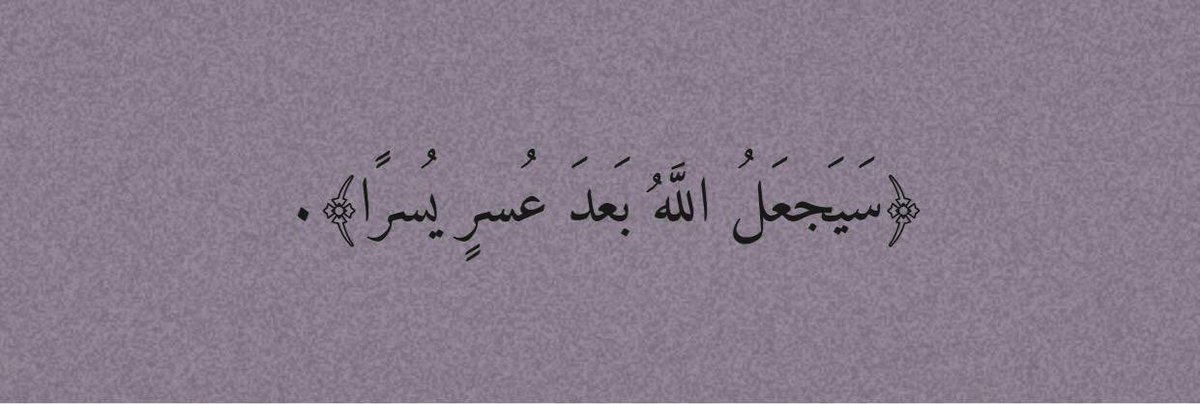 ﴿سَيَجعَلُ اللَّهُ بَعدَ عُسرٍ يُسرًا﴾.